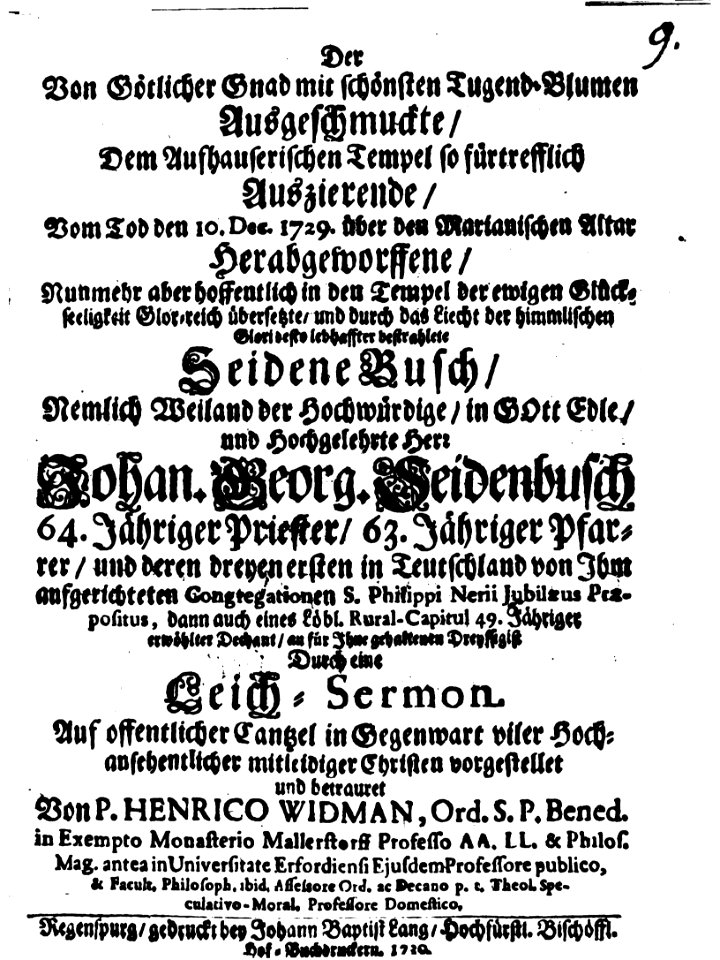 9.
Der
Von Götlicher Gnad mit schönsten Tugend-Blumen
Ausgeschmuckte /
Dem Aufhauserischen Tempel so fürtrefflich
Auszierende /
Vom Tod den 10. Dec. 1729. über den Marianischen Altar
Herabgeworffene /
Nunmehr aber hoffentlich in den Tempel der ewigen Glück-
seeligkeit Glor-reich übersetzte / und durch das Liecht der himmlischen
Glori desto lebhaffter bestrahlete
Seidene Busch /
Nemlich Weiland der Hochwürdige / in GOtt Edle /
und Hochgelehrte Herr
Johan. Georg. Seidenbusch
64. Jähriger Priester / 63. Jähriger Pfar-
rer / und deren dreyen ersten in Teutschland von Ihm
aufgerichteten Congregationen S. Philippi Nerii Jubilæus Præ-
positus, dann auch eines Löbl. Rural-Capitul 49. Jähriger
erwöhlter Dechant / an für Ihne gehaltenen Dreyssigist
Durch eine
Leich-Sermon
Auf offentlicher Cantzel in Gegenwart viler Hoch-
ansehentlicher mitleidiger Christen vorgestellet
und betrauret
Von P. HENRICO WIDMAN, Ord. S. P. Bened.
in Exempto Monasterio Mallerstorff Professo AA. LL. & Philos.
Mag. antea in Universitate Erfordiensi Ejusdem Professore publico,
& Facult. Philosoph. ibid. Assessore Ord. ac Decano p. t. Theol. Spe-
culativo-Moral. Professore Domestico.
Regenspurg / gedruckt bey Johann Baptist Lang / Hochfürstl. Bischöffl.
Hof-Buchdruckern. 1730.